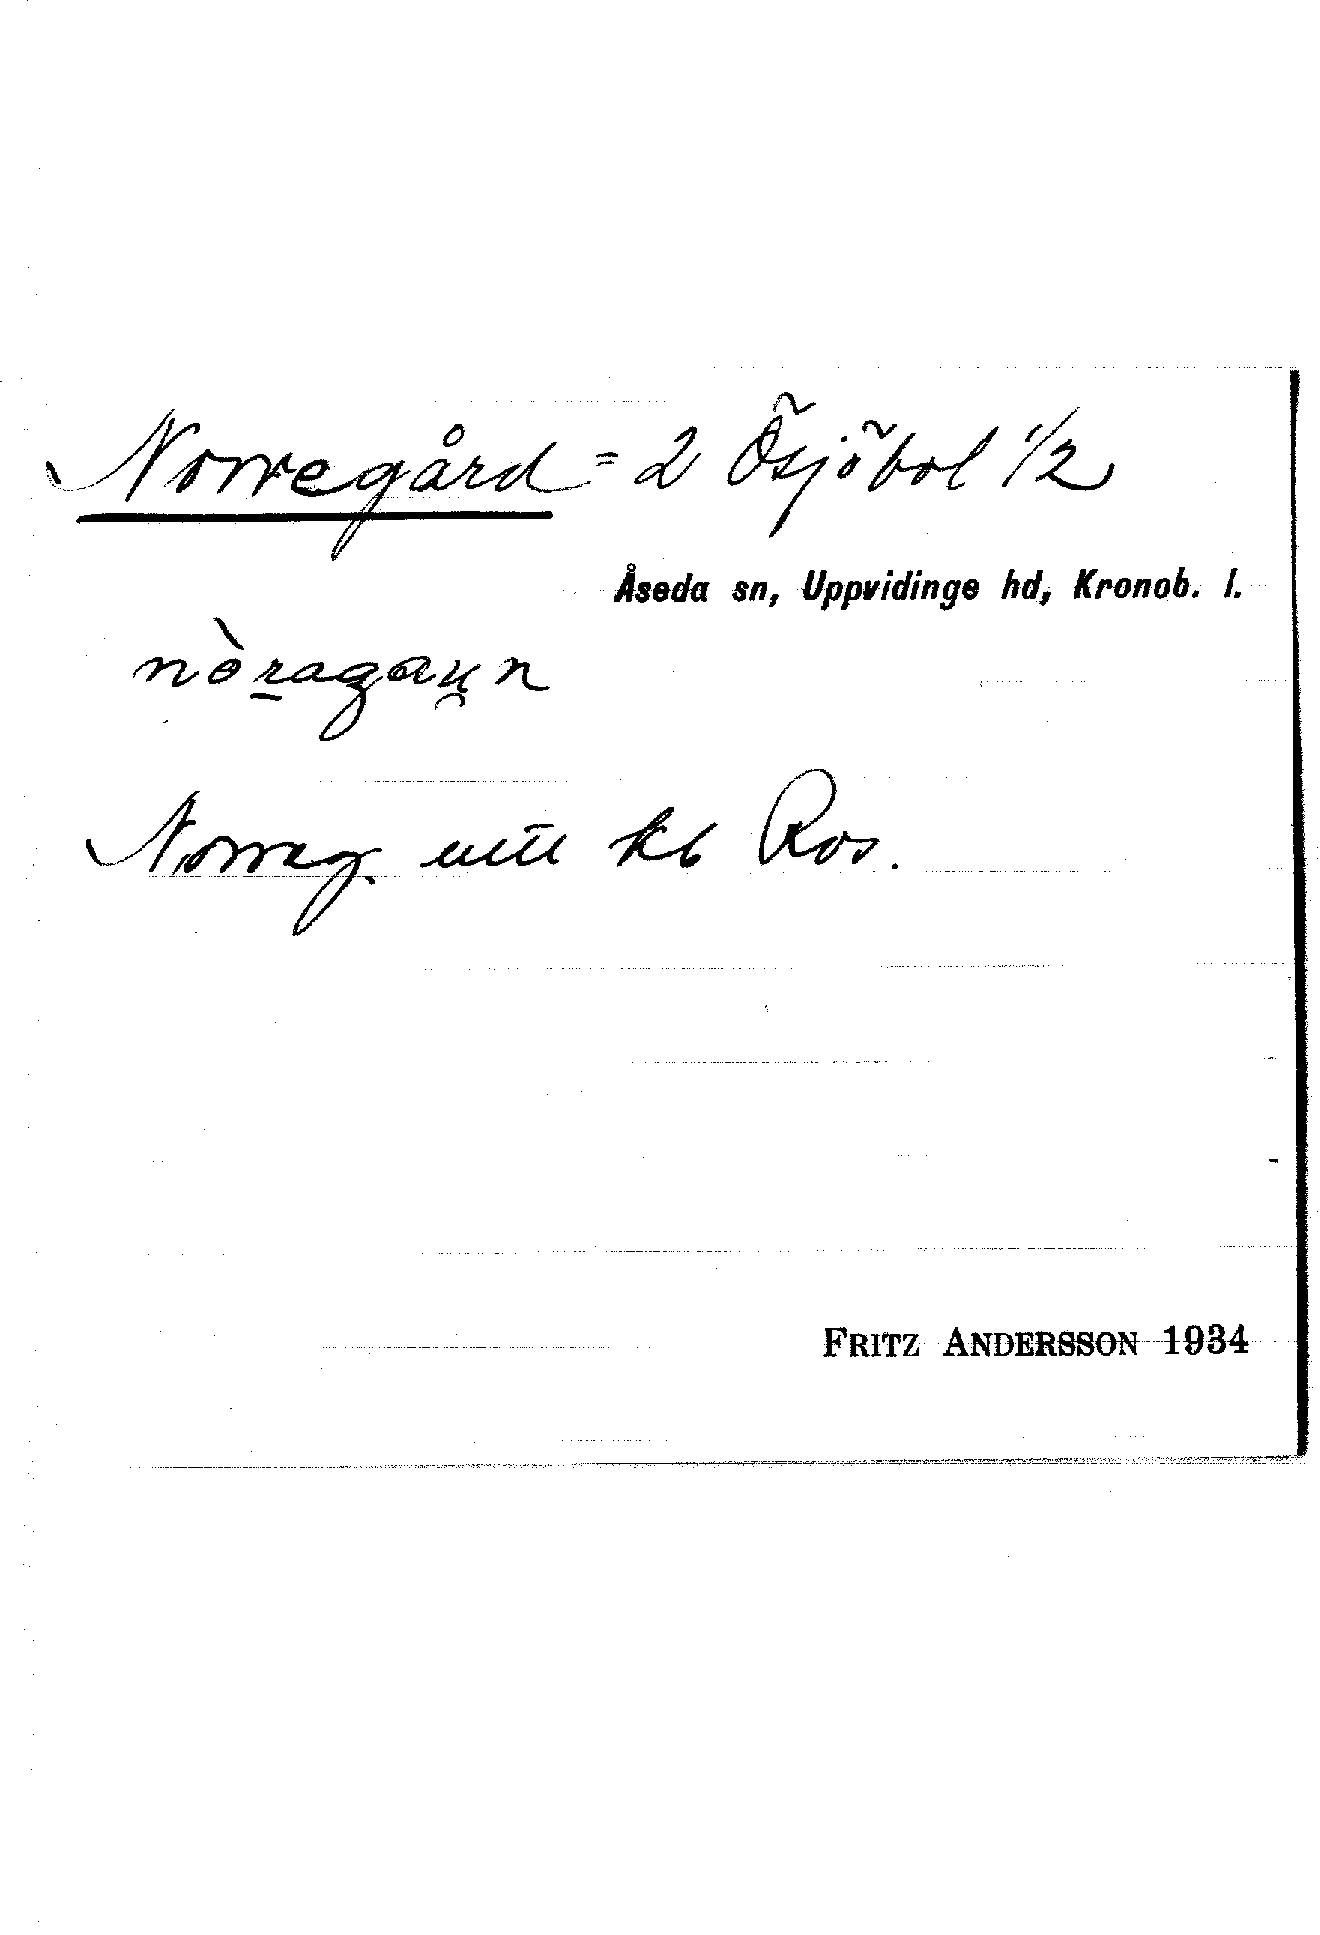 Norregård = 2 Ösjöbol 1/2
Åseda sn, Uppvidinge hd, Kronob. l.
nòragaun
Norreg. utt kb Ros.
FRITZ ANDERSSON 1934